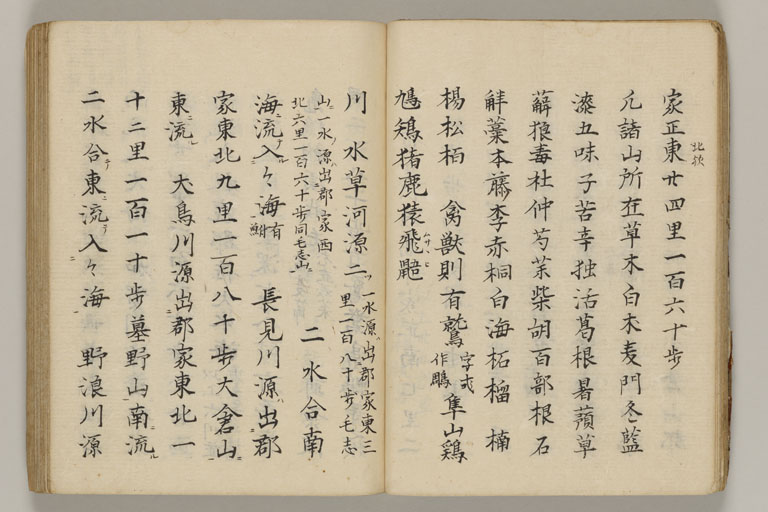 家正東廿四里一百六十歩
北欤
凢諸山所在草木白木麦門冬藍
漆五味子苦辛独活葛根暑蕷草
薢狼毒杜仲芍茱柴胡百部根石
斛藁本藤李赤桐白海柘榴楠
楊松栢 禽獣則有鷲字或作鵰隼山鶏
鳩雉猪鹿猿飛鼯
川 水草河源二一水源出郡家東三里一百八十歩毛志
山一水源出郡家西北六里一百六十歩同毛志山 二水合南
海流入々海有鮒 長見川源出郡
家東北九里一百八十歩大倉山
東流 大鳥川源出郡家東北一
十二里一百一十歩墓野山南流
二水合東流入々海 野浪川源